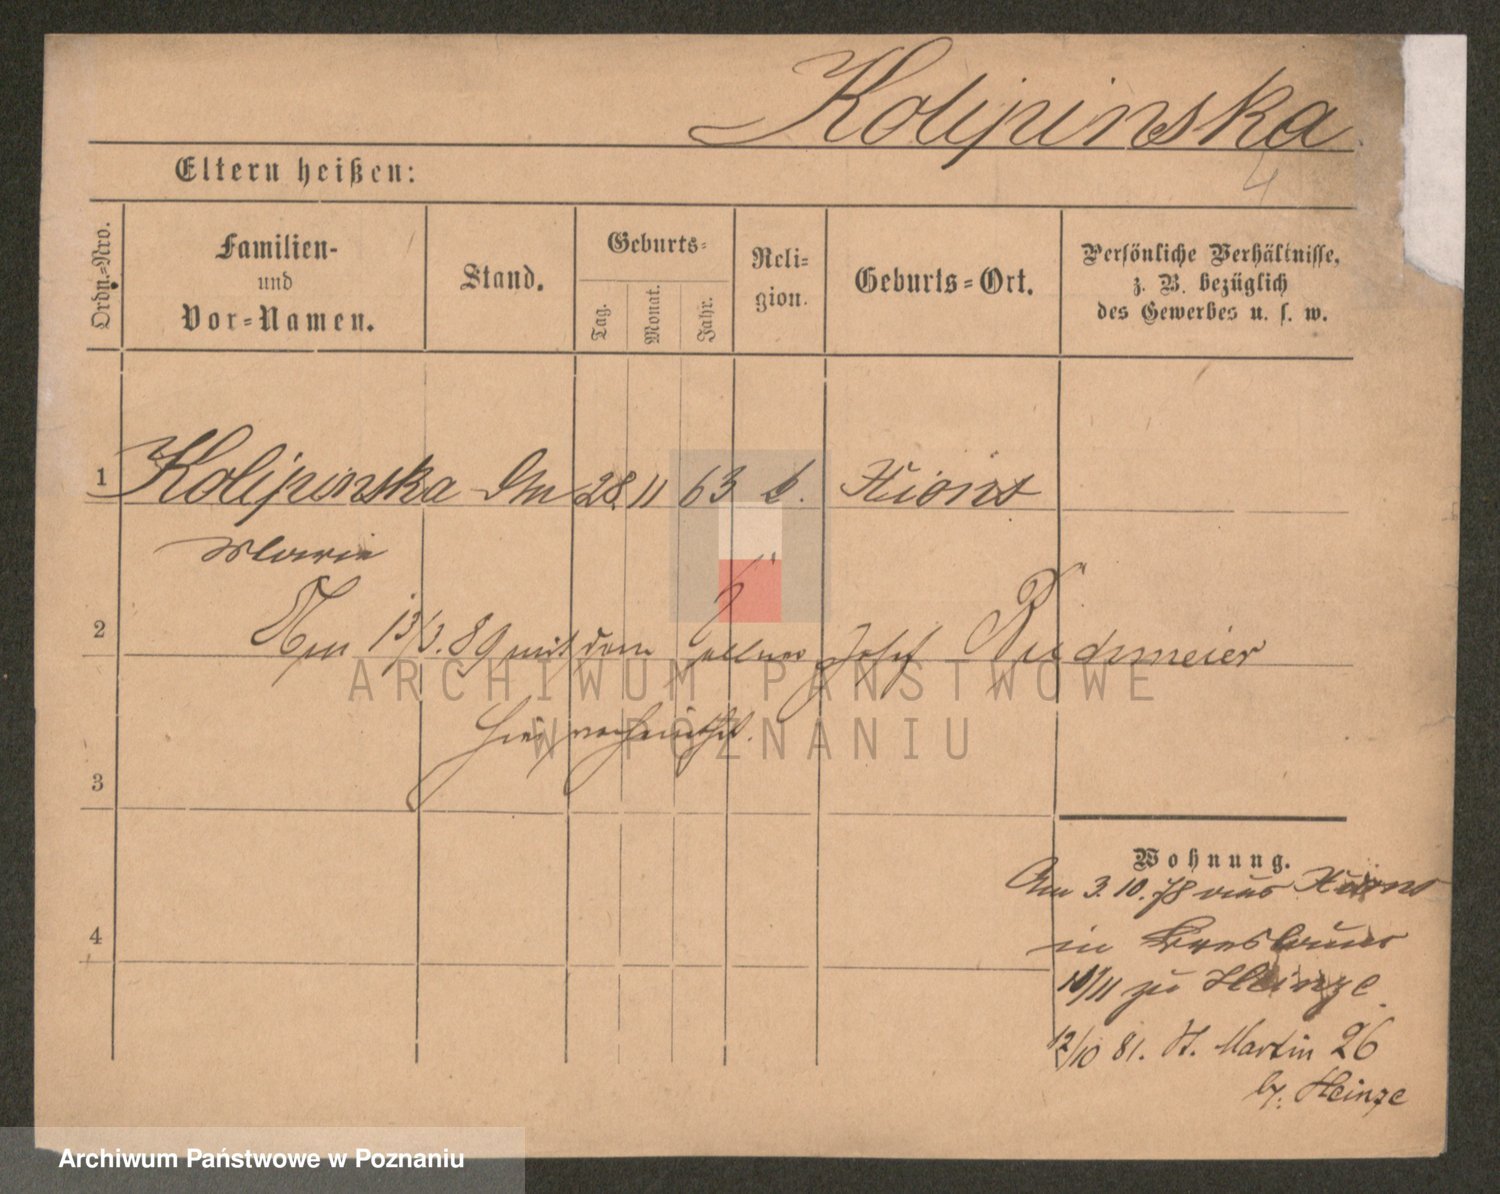 Kolipinska
Eltern heißen:
Ordn.-Nro.
Familien-
und
Vor-Namen.
Stand.
Geburts-
Tag.
Monat.
Jahr.
Reli-
gion.
Geburts-Ort.
Persönliche Verhältnisse,
z. B. bezüglich
des Gewerbes u. s. w.
1 Kolipinska 28 11 63 k. Xions
Marie
2 Am 13/3. 89 mit dem Josef
hier verheirathet.
3
Wohnung.
Am 3. 10. 78 aus Xions
4 in
10/11 zu Heinze
12/10 81. St. Martin 26
b/. Heinze
ARCHIWUM PAŃSTWOWE
W POZNANIU
Archiwum Państwowe w Poznaniu